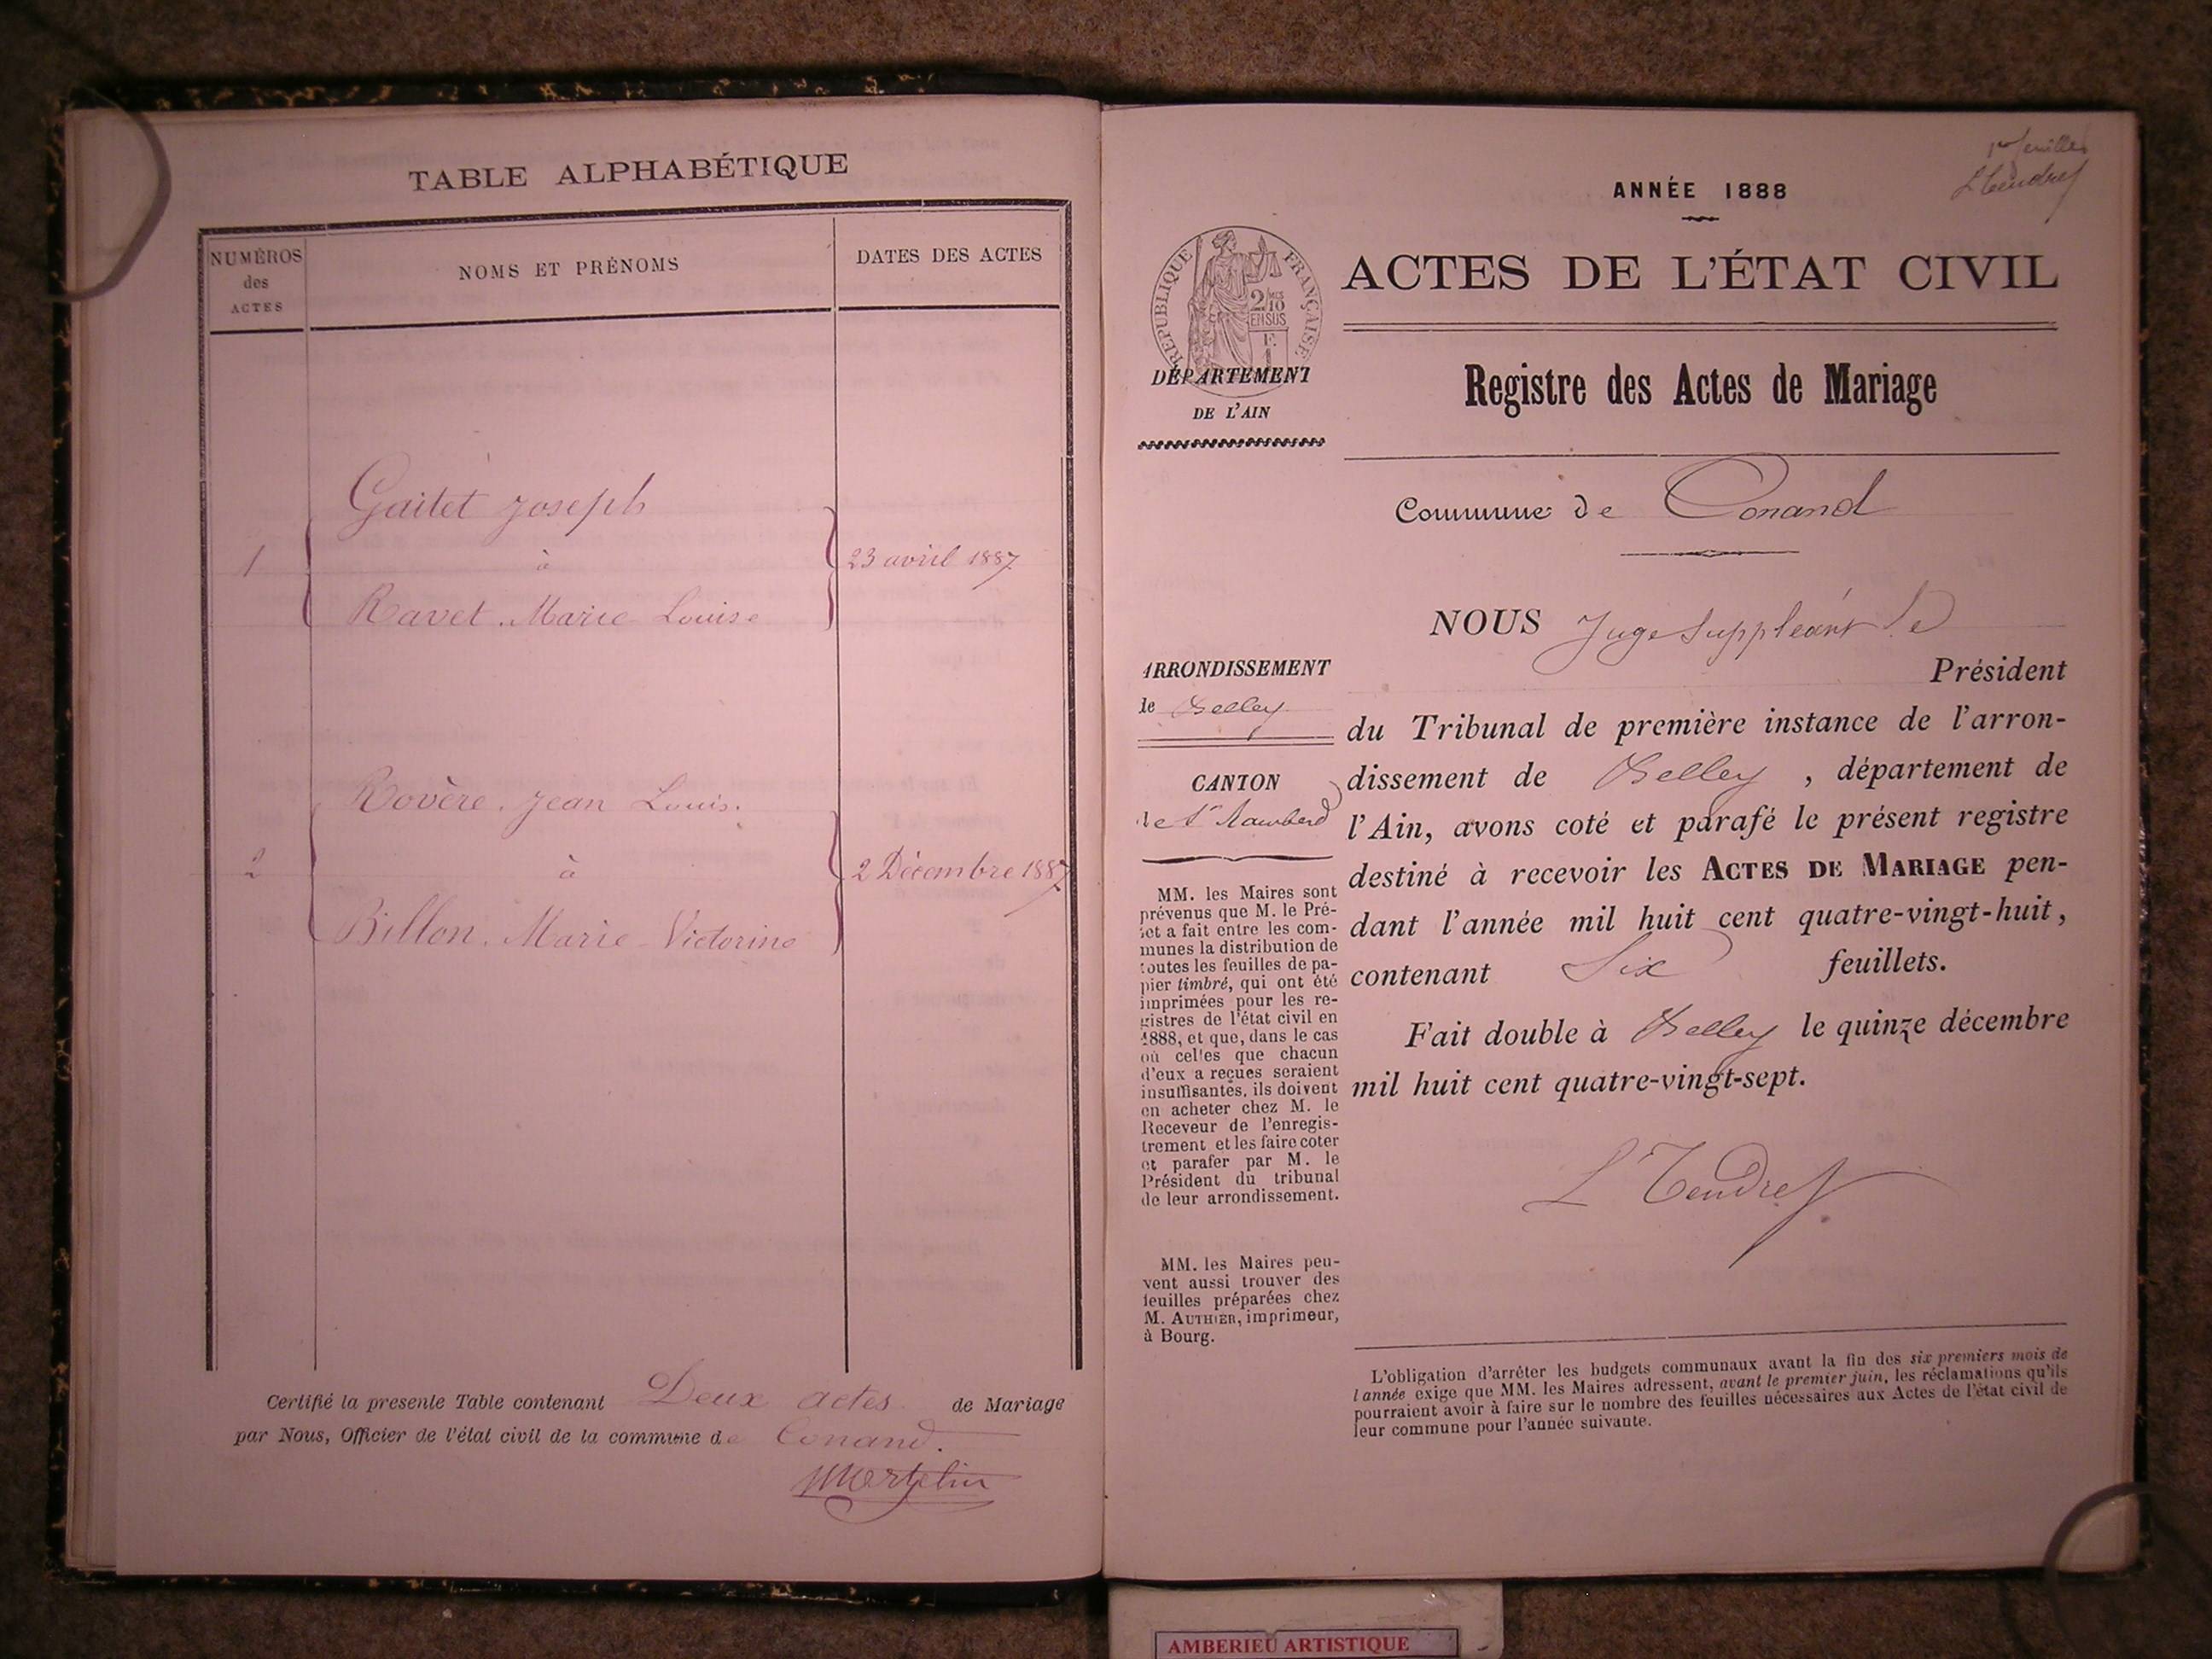 TABLE ALPHABÉTIQUE
NUMÉROS
des
ACTES
NOMS ET PRÉNOMS
DATES DES ACTES
Gaitet Joseph
1
à
23 avril 1887
Ravet Marie Louise
Rovère Jean Louis.
2
à
2 Décembre 1887
Billon Marie Victorine
Certifié la presente Table contenant Deux actes de Mariage
par Nous, Officier de l'état civil de la commune de Conand.
Martelin
1er feuillet
L Tendret
ANNÉE 1888
RÉPUBLIQUE FRANÇAISE
2/10
EN SUS
ACTES DE L'ÉTAT CIVIL
DÉPARTEMENT
DE L'AIN
Registre des Actes de Mariage
Commune de Conand
NOUS Juge Suppléant le
Président
du Tribunal de première instance de l'arron-
dissement de Belley, département de
l'Ain, avons coté et parafé le présent registre
destiné à recevoir les ACTES DE MARIAGE pen-
dant l'année mil huit cent quatre-vingt-huit,
contenant Six feuillets.
Fait double à Belley le quinze décembre
mil huit cent quatre-vingt-sept.
L Tendret
ARRONDISSEMENT
de Belley
CANTON
de St Rambert
MM. les Maires sont
prévenus que M. le Pré-
fet a fait entre les com-
munes la distribution de
toutes les feuilles de pa-
pier timbré, qui ont été
imprimées pour les re-
gistres de l'état civil en
1888, et que, dans le cas
où celles que chacun
d'eux a reçues seraient
insuffisantes, ils doivent
en acheter chez M. le
Receveur de l'enregis-
trement et les faire coter
et parafer par M. le
Président du tribunal
de leur arrondissement.
MM. les Maires peu-
vent aussi trouver des
feuilles préparées chez
M. AUTHIER, imprimeur,
à Bourg.
L'obligation d'arrêter les budgets communaux avant la fin des six premiers mois de
l'année exige que MM. les Maires adressent, avant le premier juin, les réclamations qu'ils
pourraient avoir à faire sur le nombre des feuilles nécessaires aux Actes de l'état civil de
leur commune pour l'année suivante.
AMBERIEU ARTISTIQUE